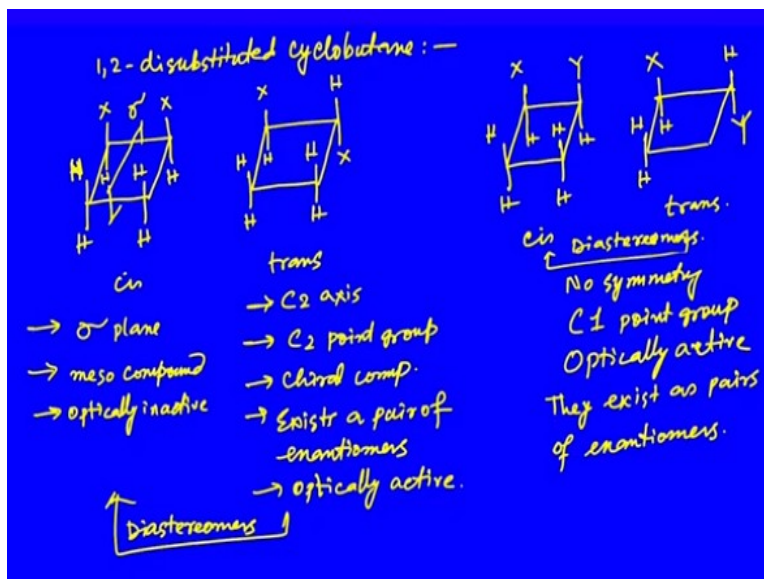 1,2-disubstituted cyclobutane:-
X σ X
H H H H
H H
cis
→ σ plane
→ meso compound
→ optically inactive
X H
H H H X
H H
trans
→ C2 axis
→ C2 point group
→ Chiral comp.
→ Exists a pair of
enantiomers
→ optically active.
Diastereomers
X Y
H H H H
H H
cis
X H
H H Y
H
trans.
Diastereomers.
No symmetry
C1 point group
Optically active
They exist as pairs
of enantiomers.